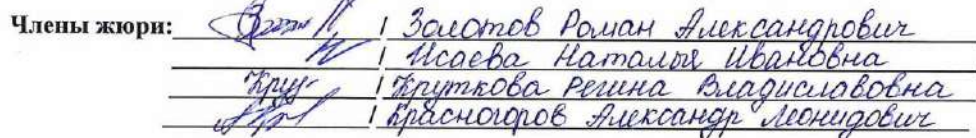 Члены жюри: / Золотов Роман Александрович
/ Исаева Наталья Ивановна
/ Круткова Регина Владиславовна
/ Красногоров Александр Леонидович